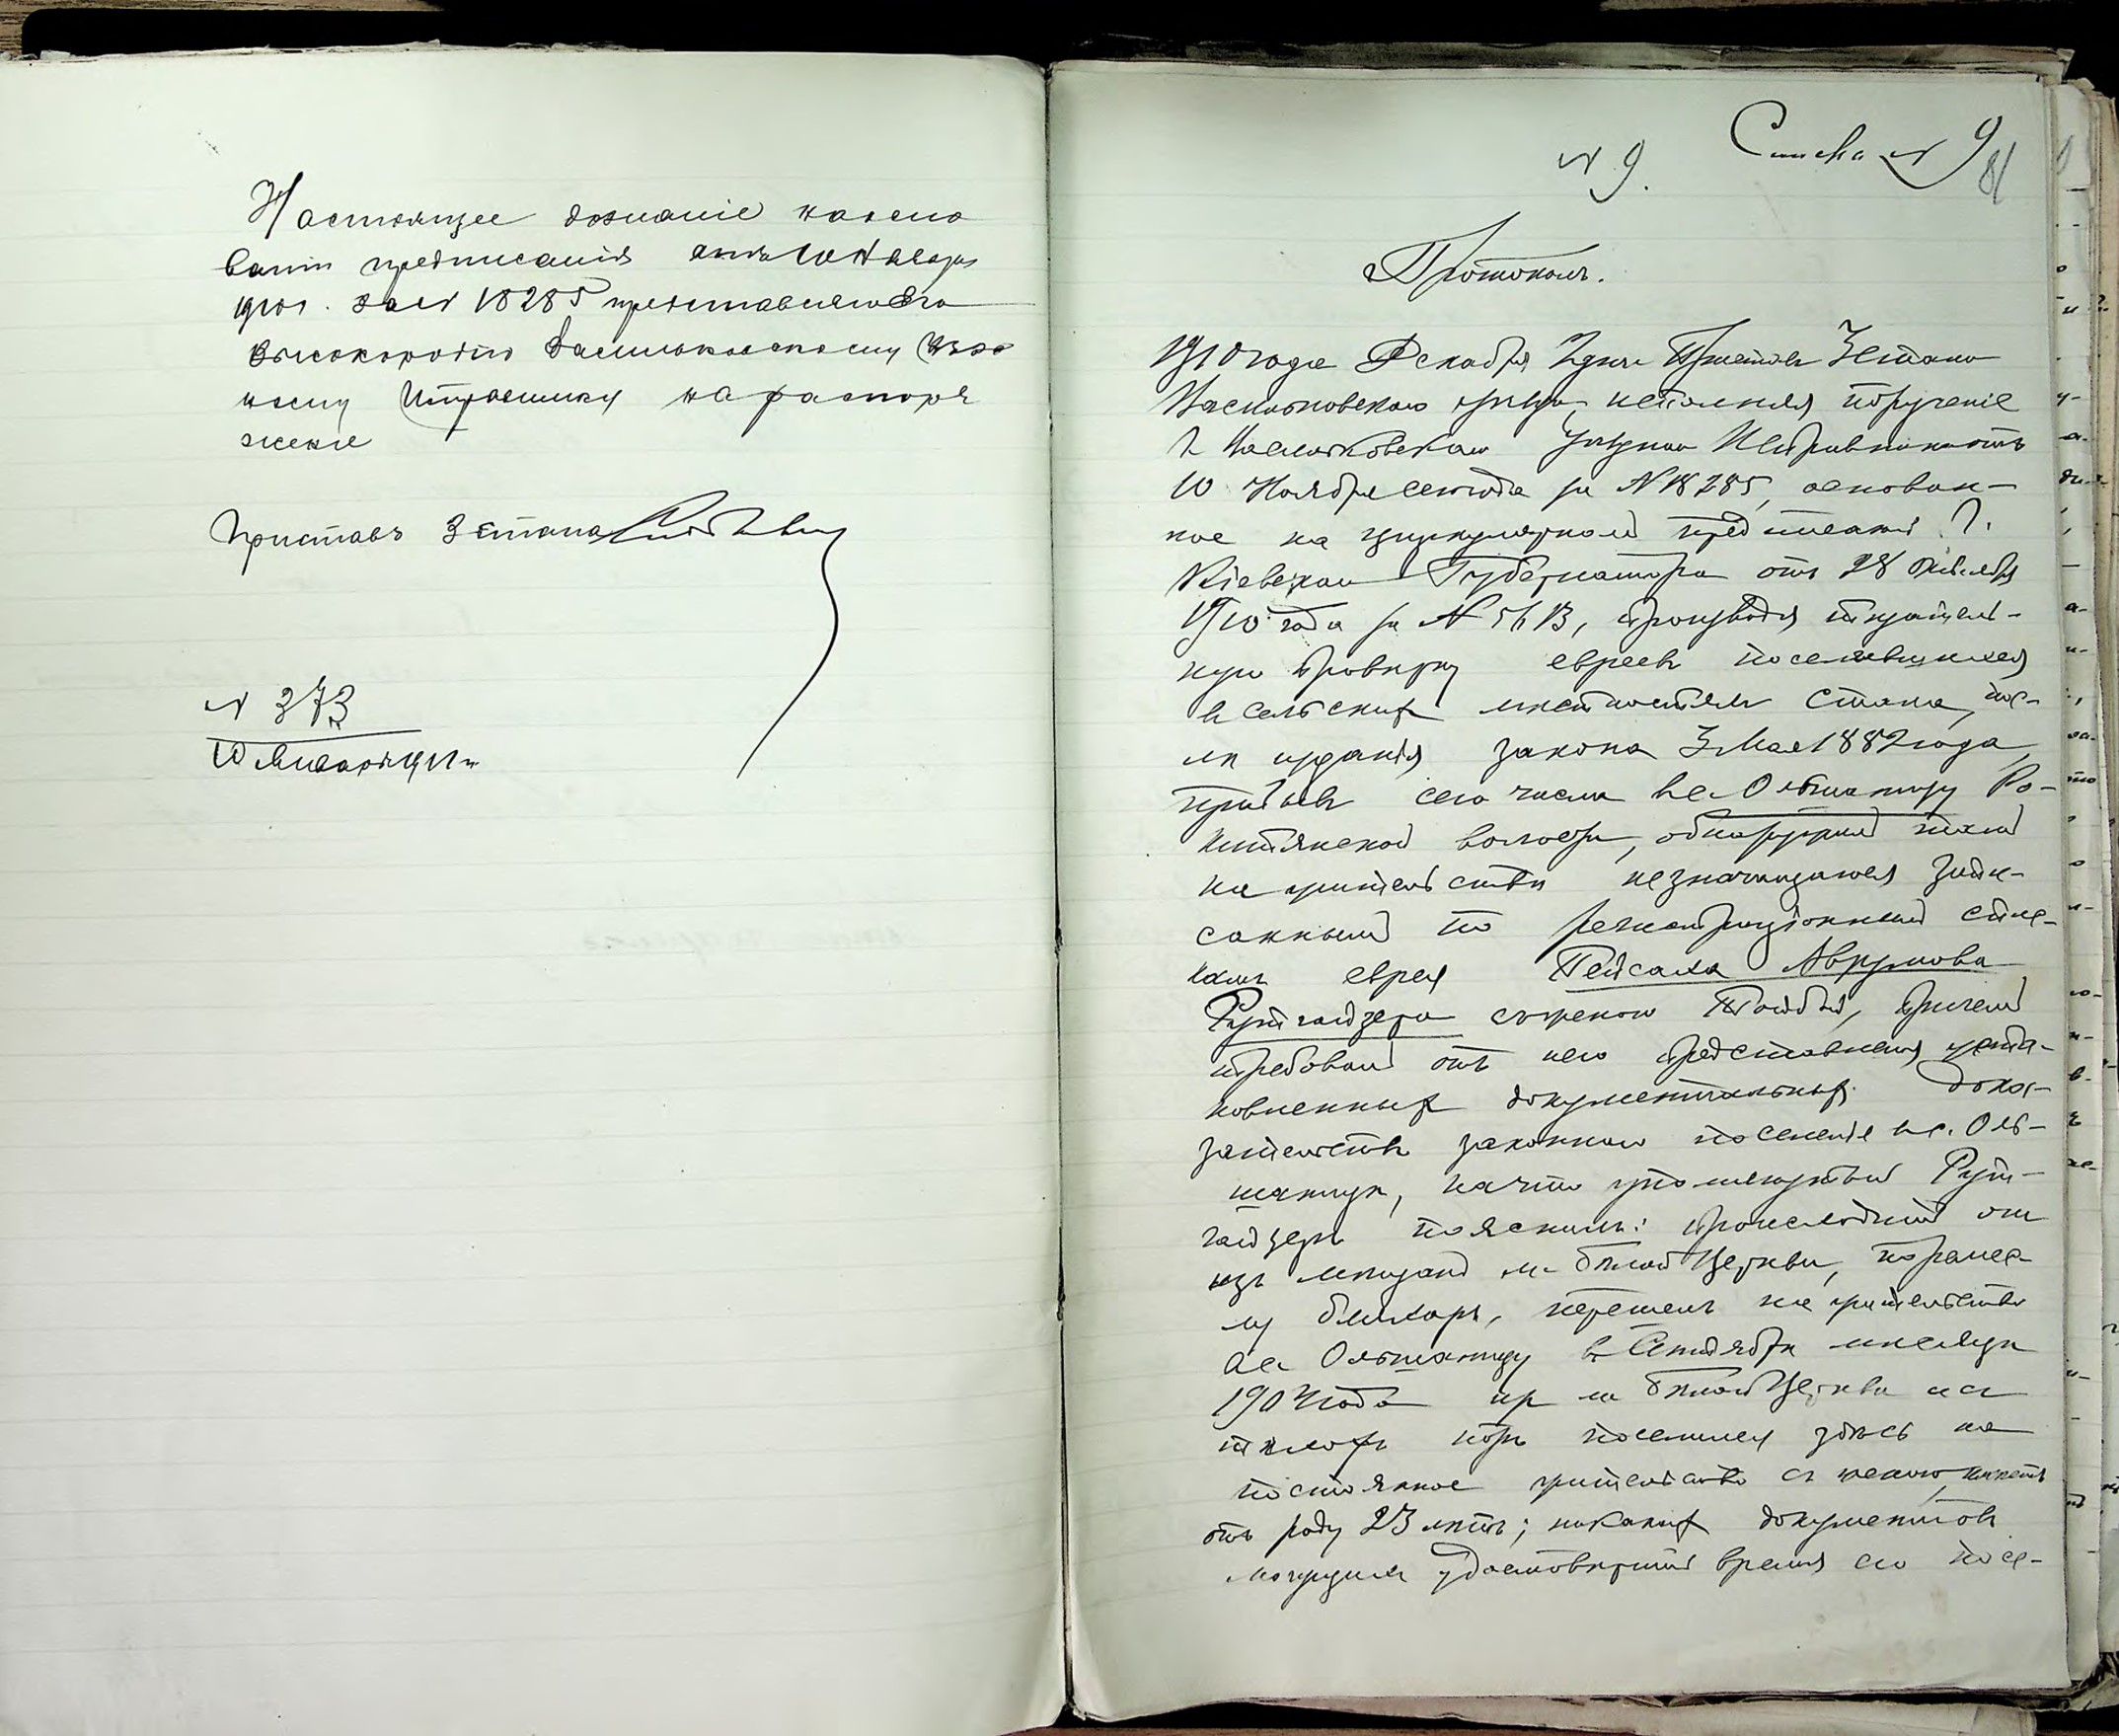 Настоящее дознаніе на осно
ваніи предписанія отъ 10 Ноября
1910 г. за № 18285 представляю Его
Высокородію Васильковскому Уѣзд
ному Исправнику на распоря
женіе
Приставъ 3 стана
№ 373
10 Января 1911 г.
№ 9. Списка № 9
81
Протоколъ.
1910 года Декабря 2 дня Приставъ 3 стана
Васильковскаго уѣзда, исполняя порученіе
Г. Васильковскаго Уѣзднаго Исправника отъ
10 Ноября сего года за № 18285, основан-
ное на циркулярномъ предписаніи Г.
Кіевскаго Губернатора отъ 28 Октября
1910 года за №, производя тщатель-
ную провѣрку евреевъ поселившихся
въ сельскихъ мѣстностяхъ стана, пос-
лѣ изданія закона 3 Мая 1882 года,
прибывъ сего числа въ с. Ольшаницу Ро-
китянской волости, обнаружилъ тамъ
на жительствѣ незначащагося запи-
саннымъ по регистраціоннымъ спис-
камъ еврея Пейсаха Аврумова
Рутгайзера съ женою, причемъ
требовалъ отъ него представленія уста-
новленныхъ документальныхъ дока-
зательствъ законнаго поселенія въ с. Оль-
шаницѣ, на что упомянутый Рут-
гайзеръ пояснилъ: происходитъ онъ
изъ мѣщанъ м. Бѣлой Церкви, по ремес-
лу столяръ, перешелъ на жительство
въ с. Ольшаницу въ Сентябрѣ мѣсяцѣ
190 года изъ м. Бѣлой Церкви и съ
тѣхъ поръ поселился здѣсь на
постоянное жительство съ женою, имѣетъ
отъ роду 23 лѣтъ; никакихъ документовъ
могущихъ удостовѣрить время его посе-